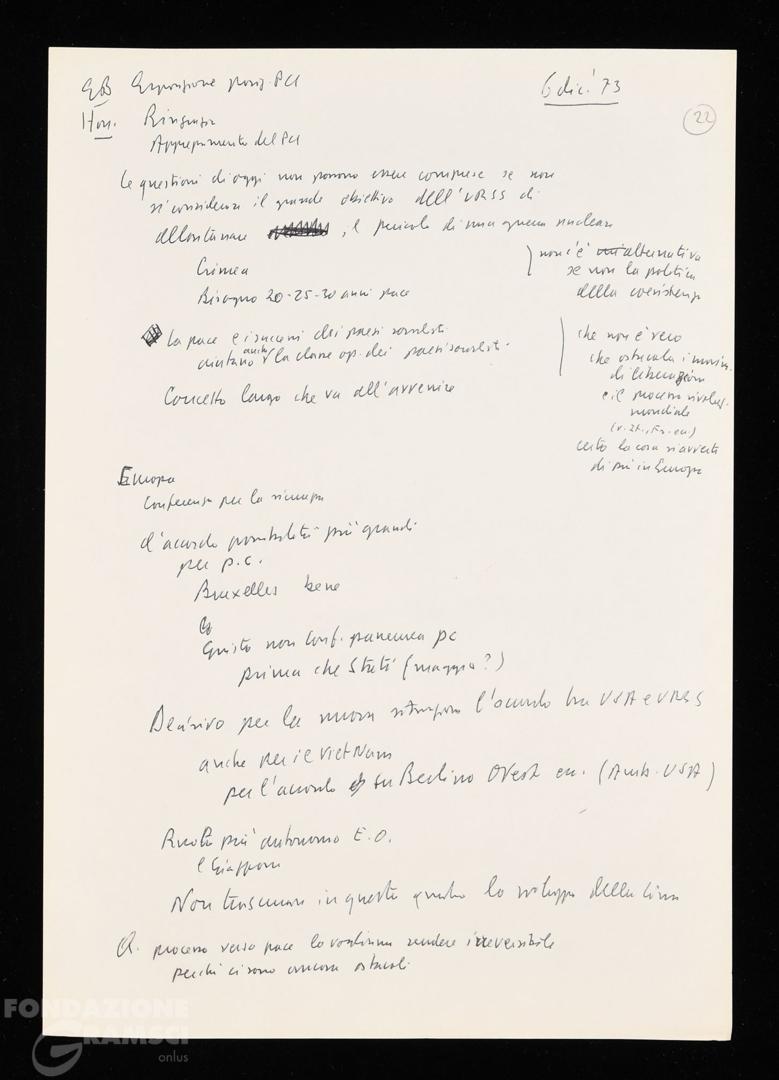 EB Esposizione posiz. PCI
6 dic. '73
22
Hon. Ringrazia
Apprezzamento del PCI
Le questioni di oggi non possono essere comprese se non
si considera il grande obiettivo dell'URSS di
allontanare, il pericolo di una guerra nucleare
non c'è un'alternativa
se non la politica
della coesistenza
Crimea
Bisogno 20-25-30 anni pace
La pace e i successi dei paesi socialisti
aiutano anche la classe op. dei paesi socialisti.
Concetto lungo che va all'avvenire
che non è vero
che ostacola i movim.
di liberazione
e il processo rivoluz.
mondiale
(v. It., Fr. ecc.)
certo la cosa si avverte
di più in Europa
Europa
Conferenza per la sicurezza
d'accordo possibilità più grandi
per p.c.
Bruxelles bene
Giusto non Conf. paneuropea pc
prima che Stati (maggio?)
Decisivo per la nuova situazione l'accordo tra USA e URSS
anche per il Viet Nam
per l'accordo su Berlino Ovest ecc. (Amb. USA)
Ruolo più autonomo E.O.
e Giappone
Non trascurare in questo quadro lo sviluppo della Cina
Q. processo verso pace lo vogliamo rendere irreversibile
perché ci sono ancora ostacoli
FONDAZIONE
GRAMSCI
onlus